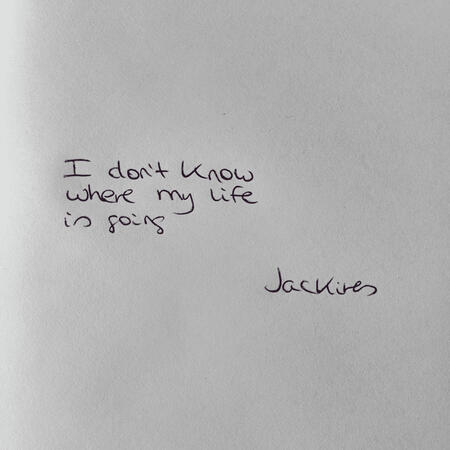 I don't know
where my life
is going
Jackires